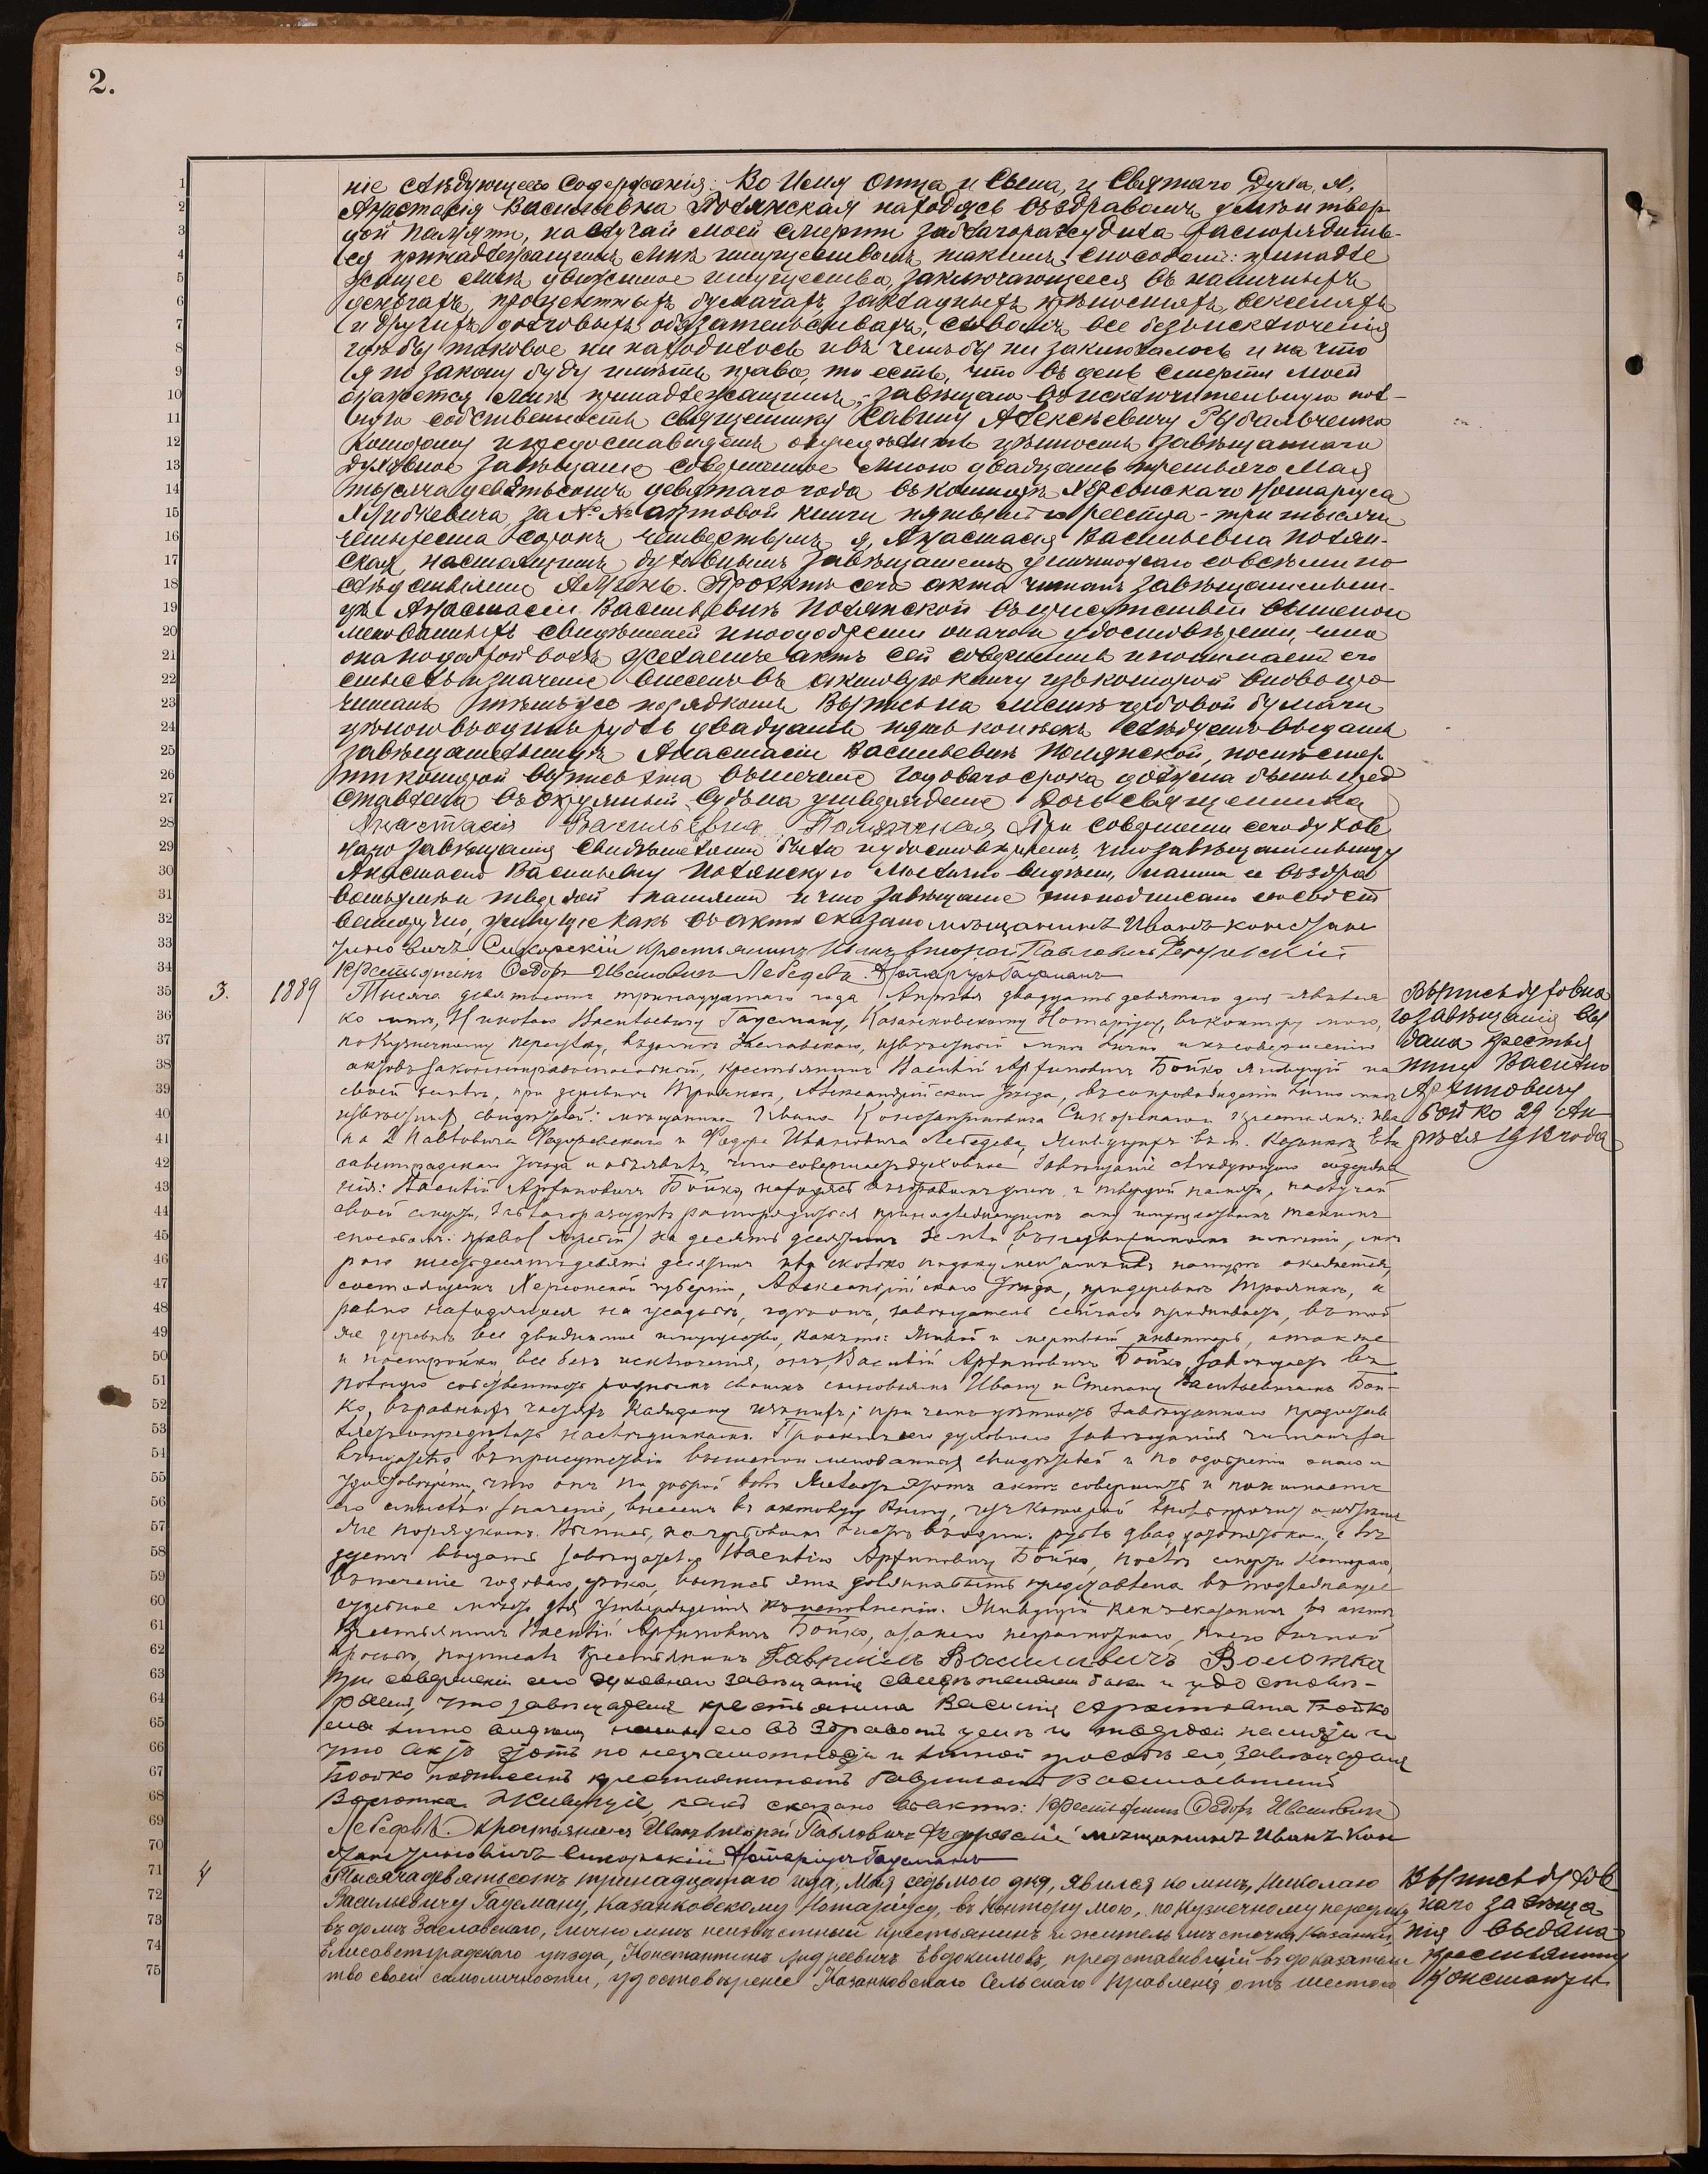 2.
1 ніе слѣдующего содержанія: Во Имя Отца, и Сына, и Святаго Духа, Я,
2 Анастасія Васильевна Полянская находясь въ здравомъ умѣ и твер
3 дой памяти, на случай моей смерти заблагоразсудила распорядить-
4 ся принадлежащимъ мнѣ имуществомъ такимъ способомъ: принадле
5 жащее мнѣ движимое имущество, заключающееся въ наличныхъ
6 деньгахъ, процентныхъ бумагахъ, закладныхъ крѣпостяхъ, векселяхъ
7 и другихъ долговыхъ обязательствахъ, словомъ все безъ исключенія
8 гдѣ бы таковое ни находилось и въ чемъ бы ни заключалось и на что
9 я по закону буду имѣть право, то есть, что въ день смерти моей
10 окажется мнѣ принадлежащимъ, - завѣщаю въ исключительную пол-
11 ную собственность священнику Савину Алексѣевичу Рубальченко
12 которому и предоставляемъ опредѣлить цѣнность завѣщаннаго
13 духовное завѣщаніе совершенное мною двадцать третьяго Мая
14 тысяча девятьсотъ девятаго года въ конторѣ Херсонскаго Нотаріуса
15 за №№ актовой книги реестра - три тысячи
16 четыреста сорокъ четвертымъ я, Анастасія Васильевна Полян-
17 ская, настоящимъ духовнымъ завѣщаніемъ уничтожаю со всѣми по
18 слѣдствіями Аминь. Проектъ сего акта читанъ завѣщательни-
19 цѣ Анастасіи Васильевнѣ Полянской въ присутствіи вышепои
20 менованныхъ свидѣтелей и по одобреніи онаго и удостовѣреніи, что
21 она по доброй волѣ желаетъ актъ сей совершить и понимаетъ его
22 смыслъ и значеніе внесенъ въ актовую книгу изъ которой вновь про
23 читанъ тѣмъ же порядкомъ Выпись на листѣ гербовой бумаги
24 цѣною въ одинъ рубль двадцать пять копѣекъ слѣдуетъ выдать
25 завѣщательницѣ Анастасіи Васильевнѣ Полянской, послѣ смер
26 ти которой выпись эта въ теченіе годоваго срока должна быть пред
27 ставлена въ окружный Судъ на утвержденіе Дочь священника
28 Анастасія Васильевна Полянская При совершеніи сего духов
29 наго завѣщанія свидѣтелями были и удостовѣряемъ, что завѣщательницу
30 Анастасію Васильевну Полянскую мы лично видѣли, нашли ее въ здра
31 вомъ умѣ и твердой памяти и что завѣщаніе это подписано ею собст
32 венноручно, живущіе какъ въ актѣ сказано мѣщанинъ Иванъ Констан
33 тиновичъ Сикорскій крестьянинъ Иванъ второй Павловичъ Федоровскій
34 Крестьянинъ Федоръ Ивановичъ Лебедевъ. Нотаріусъ Гаусманъ
35 3. 1889 Тысяча девятьсотъ тринадцатаго года Апрѣля двадцать девятаго дня явился
36 ко мнѣ, Николаю Васильевичу Гаусману, Казанковскому Нотаріусу, въ контору мою,
37 по Кузнечному переулку, въ домѣ Заславскаго, извѣстный мнѣ лично и къ совершенію
38 актовъ законоправоспособный, крестьянинъ Василій Архиповичъ Бойко, живущій на
39 своей землѣ, при деревнѣ Трояновкѣ, Александрійскаго уѣзда, въ сопровожденіи лично мнѣ
40 извѣстныхъ свидѣтелей: мѣщанина Ивана Константиновича Сикорскаго и крестьянъ: Ива
41 на 2 Павловича Федоровскаго и Федора Ивановича Лебедева, живущихъ въ м. Казанкѣ, Ели
42 саветградскаго уѣзда и объявилъ, что совершаетъ духовное завѣщаніе слѣдующаго содержа
43 нія: Василій Архиповичъ Бойко, находясь въ здравомъ умѣ и твердой памяти, на случай
44 своей смерти, заблагоразсудилъ распорядиться принадлежащимъ ему имуществомъ такимъ
45 способомъ: право на десять десятинъ земли,
46 шестьдесятъ девять десятинъ окажется,
47 состоящемъ Херсонской губерніи, Александрійскаго уѣзда, при деревнѣ Трояновкѣ, а
48 равно находящееся на усадьбѣ, гдѣ онъ, завѣщатель сейчасъ проживаетъ, въ той
49 же деревнѣ все движимое имущество, какъ то: живой и мертвый инвентарь, а также
50 и постройки, все безъ исключенія, онъ, Василій Архиповичъ Бойко, завѣщаетъ въ
51 полную собственность роднымъ своимъ сыновьямъ Ивану и Степану Васильевичамъ Бой-
52 ко, въ равныхъ частяхъ каждому изъ нихъ; при чемъ цѣнность завѣщаннаго предостав
53 ляетъ опредѣлить наслѣдникамъ. Проектъ сего духовнаго завѣщанія читанъ за
54 вѣщателю въ присутствіи вышепоименованныхъ свидѣтелей и по одобреніи онаго и
55 удостовѣреніи, что онъ по доброй волѣ желаетъ этотъ актъ совершить и понимаетъ
56 его смыслъ и значеніе, внесенъ въ актовую книгу, изъ которой вновь прочитанъ тѣмъ
57 же порядкомъ. Выпись, на гербовомъ листѣ въ одинъ рубль двадцать пять коп., слѣ
58 дуетъ выдать завѣщателю Василію Архиповичу Бойко, послѣ смерти котораго,
59 въ теченіе годоваго срока, выпись эта должна быть представлена въ подлежащее
60 судебное мѣсто для утвержденія къ исполненію. Живущій какъ сказано въ актѣ
61 Крестьянинъ Василій Архиповичъ Бойко, а за него неграмотнаго, по его личной
62 просьбѣ, подписалъ Крестьянинъ Гавріилъ Васильевичъ Волотка
63 При совершеніи сего духовнаго завѣщанія свидѣтелями были и удостовѣ-
64 ряемъ, что завѣщателя крестьянина Василія Архиповича Бойко
65 мы лично видѣли, нашли его въ здравомъ умѣ и твердой памяти и
66 что актъ этотъ по неграмотности и личной просьбѣ его, завѣщателя
67 Бойко подписанъ крестьяниномъ Гавріиломъ Васильевичемъ
68 Волотка. Живущіе, какъ сказано въ актѣ: Крестьянинъ Федоръ Ивановичъ
69 Лебедевъ. Крестьянинъ Иванъ второй Павловичъ Федоровскій мѣщанинъ Иванъ Кон
70 стантиновичъ Сикорскій Нотаріусъ Гаусманъ
71 4 Тысяча девятьсотъ тринадцатаго года, Мая седьмого дня, явился ко мнѣ, Николаю
72 Васильевичу Гаусману, Казанковскому Нотаріусу, въ контору мою, по Кузнечному переулку
73 въ домѣ Заславскаго, лично мнѣ неизвѣстный крестьянинъ и житель мѣстечка Казанки,
74 Елисаветградскаго уѣзда, Константинъ Андреевичъ Евдокимовъ, представившій въ доказательс
75 тво своей самоличности, удостовѣреніе Казанковскаго Сельскаго Правленія отъ шестого
Выпись духовна
го завѣщанія вы
дана крестья
нину Василію
Архиповичу
Бойко 29 Ап
рѣля 1913 года
Выпись духов
наго завѣща
нія выдана
крестьянину
Константи